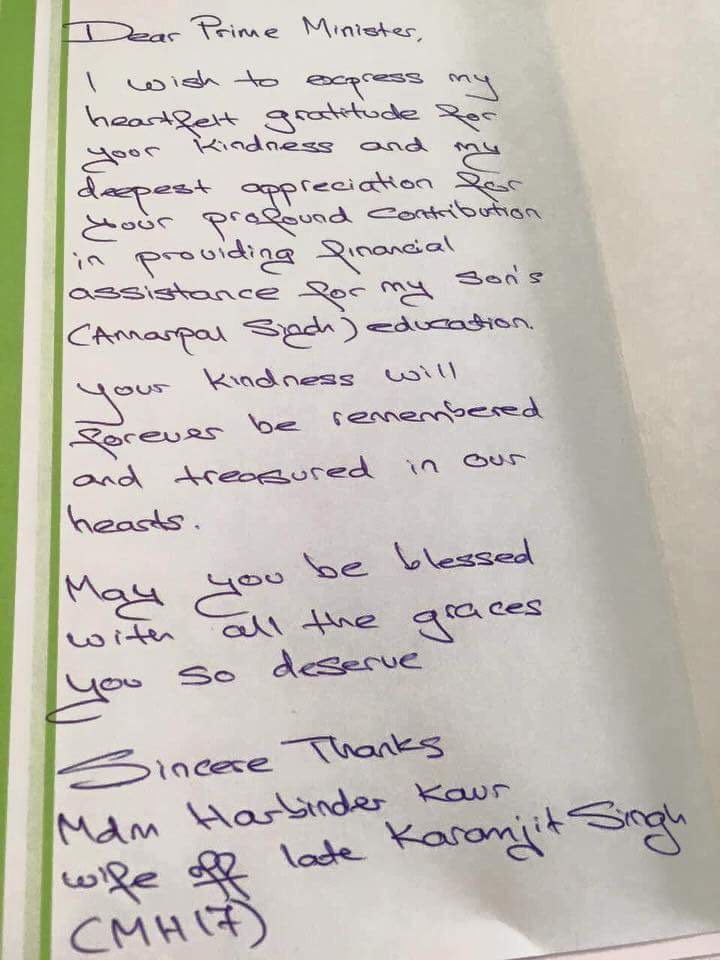 Dear Prime Minister,
I wish to express my
heartfelt gratitude for
your kindness and my
deepest appreciation for
your profound contribution
in providing financial
assistance for my son's
(Amarpal Singh) education.
Your kindness will
forever be remembered
and treasured in our
hearts.
May you be blessed
with all the graces
you so deserve
Sincere Thanks
Mdm Harbinder Kaur
wife off late Karamjit Singh
(MH17)